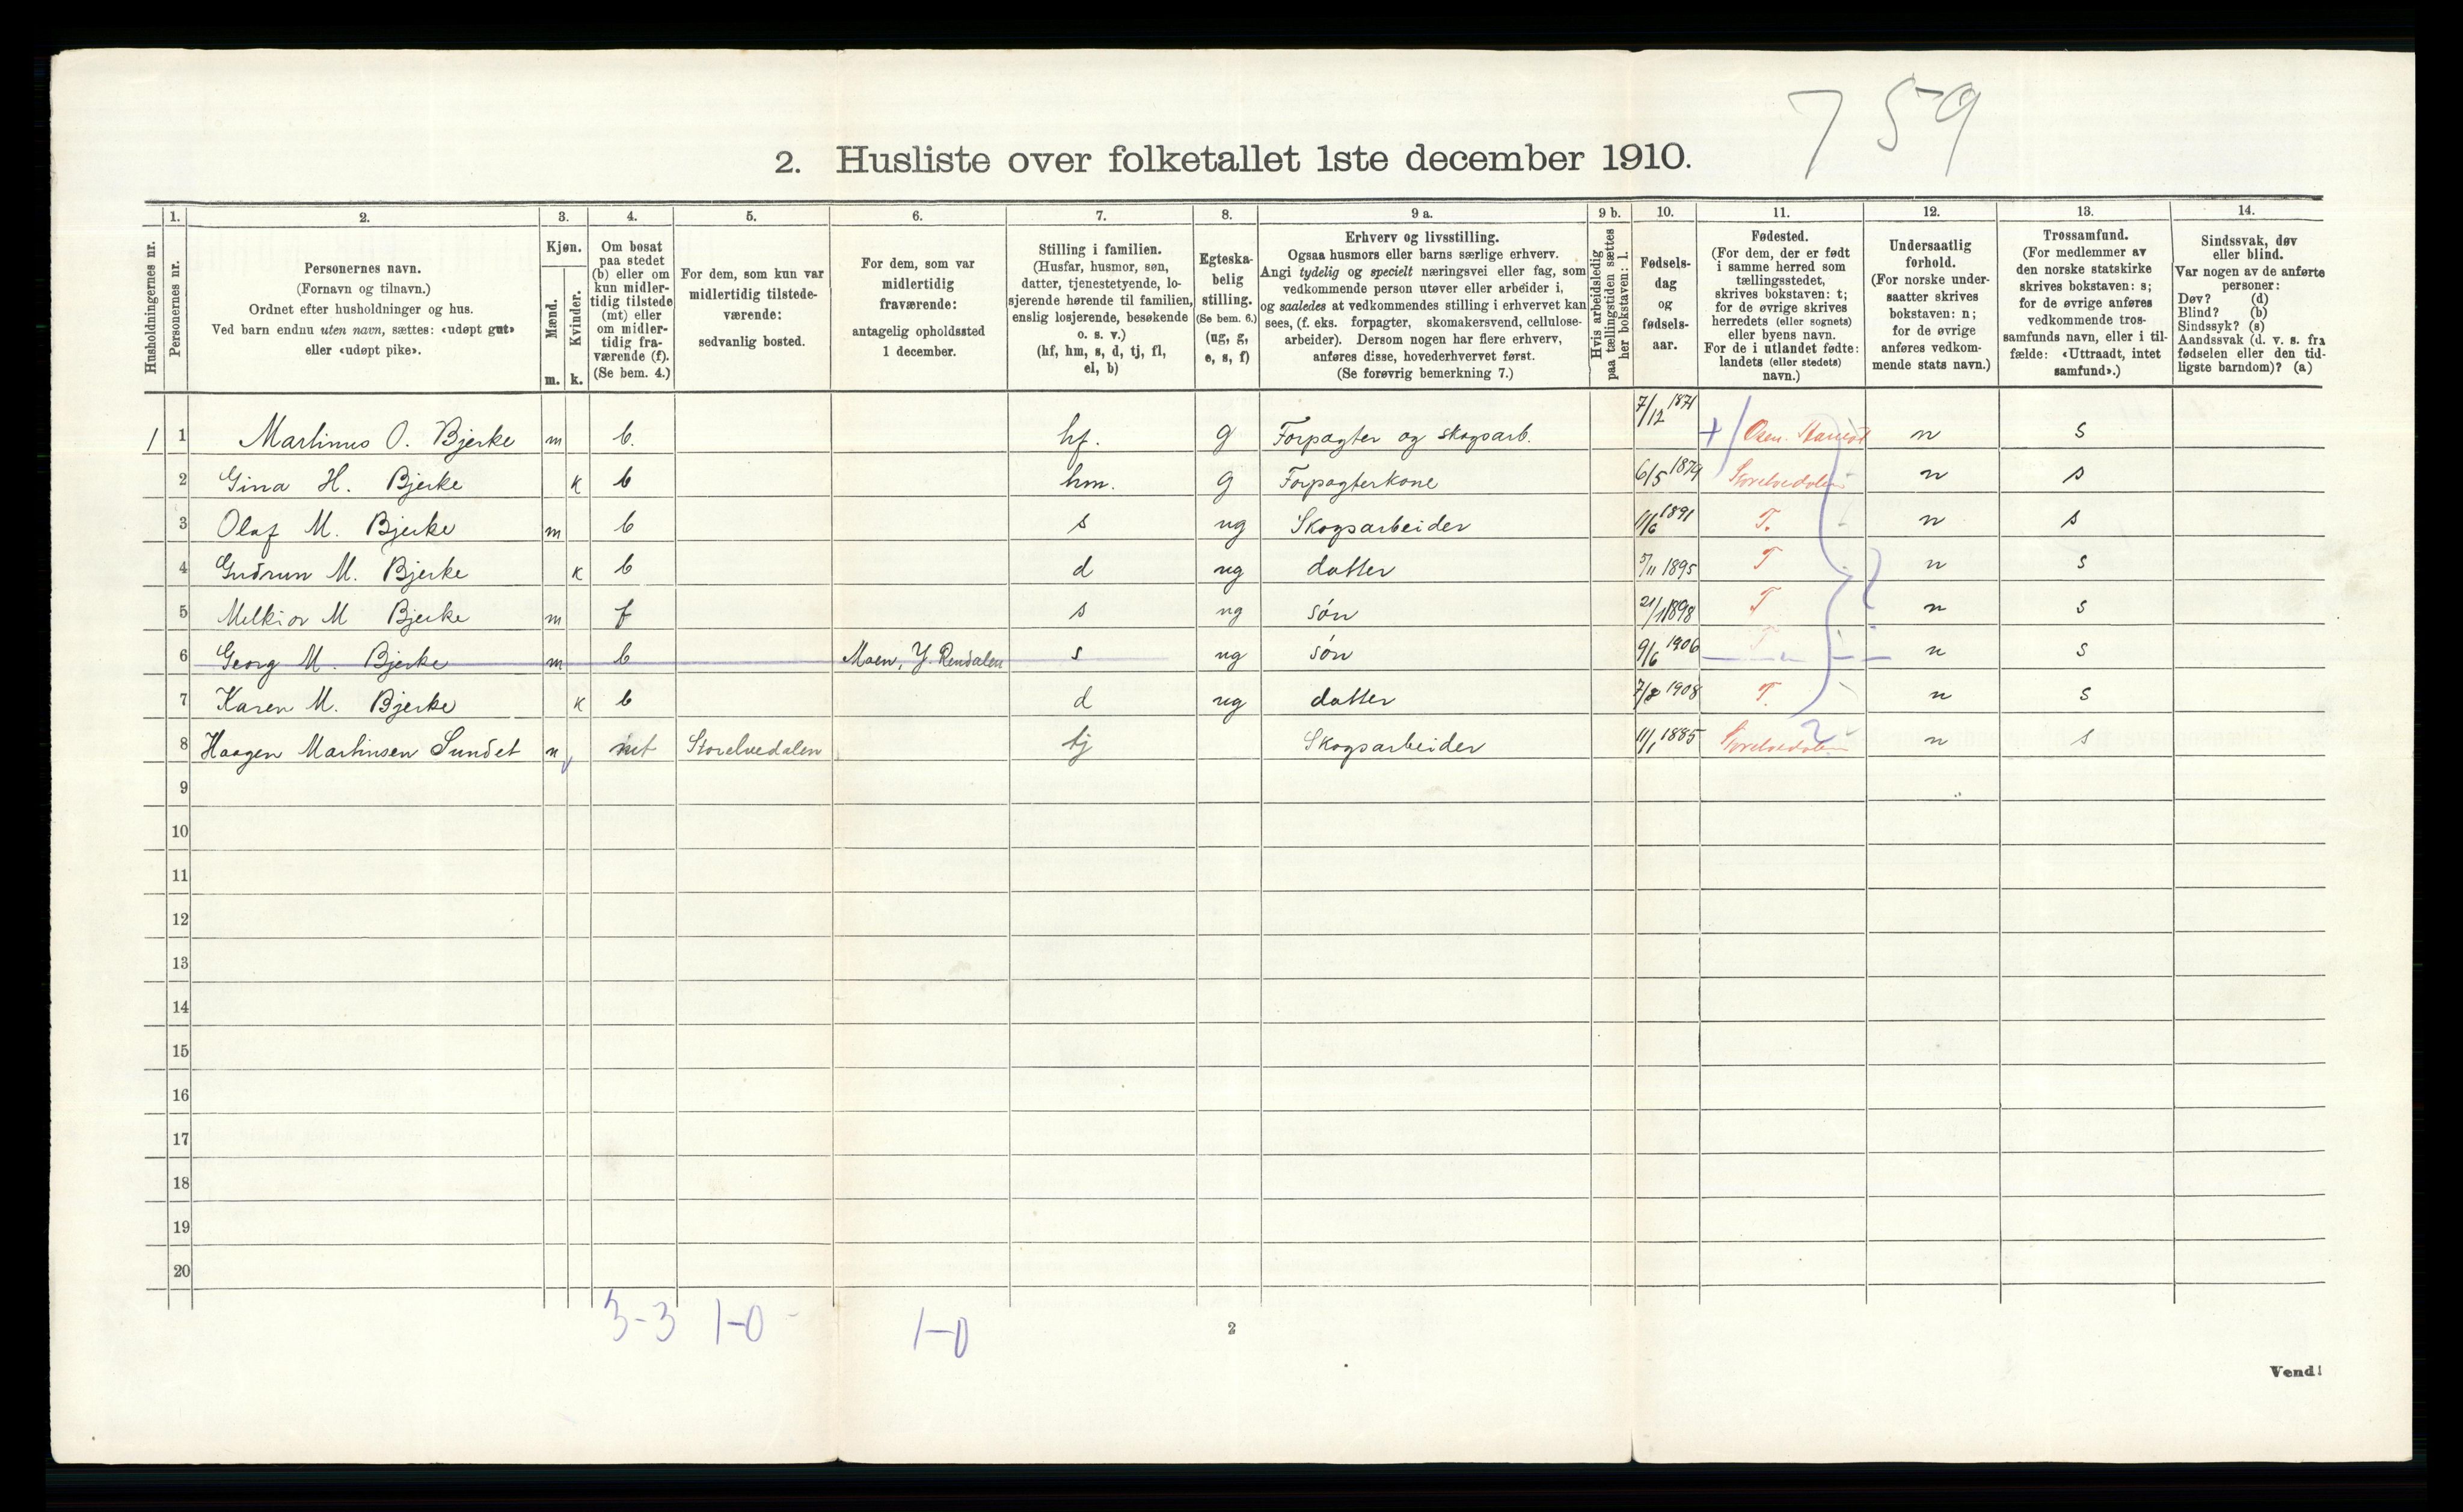 759
2. Husliste over folketallet 1ste december 1910.
Husholdningernes nr.
1.
Personernes nr.
2.
Personernes navn.
(Fornavn og tilnavn.)
Ordnet efter husholdninger og hus.
Ved barn endnu uten navn, sættes: «udøpt gut»
eller «udøpt pike».
3.
Kjøn.
Mænd.
Kvinder.
m. k.
4.
Om bosat
paa stedet
(b) eller om
kun midler-
tidig tilstede
(mt) eller
om midler-
tidig fra-
værende (f).
(Se bem. 4.)
5.
For dem, som kun var
midlertidig tilstede-
værende:
sedvanlig bosted.
6.
For dem, som var
midlertidig
fraværende:
antagelig opholdssted
1 december.
7.
Stilling i familien.
(Husfar, husmor, søn,
datter, tjenestetyende, lo-
sjerende hørende til familien,
enslig losjerende, besøkende
o. s. v.)
(hf, hm, s, d, tj, fl,
el, b)
8.
Egteska-
belig
stilling.
(Se bem. 6.)
(ug, g,
e, s, f)
9 a.
Erhverv og livsstilling.
Ogsaa husmors eller barns særlige erhverv.
Angi tydelig og specielt næringsvei eller fag, som
vedkommende person utøver eller arbeider i,
og saaledes at vedkommendes stilling i erhvervet kan
sees, (f. eks. forpagter, skomakersvend, cellulose-
arbeider). Dersom nogen har flere erhverv,
anføres disse, hovederhvervet først.
(Se forøvrig bemerkning 7.)
9 b.
Hvis arbeidsledig
paa tællingstiden sættes
her bokstaven: l.
10.
Fødsels-
dag
og
fødsels-
aar.
11.
Fødested.
(For dem, der er født
i samme herred som
tællingsstedet,
skrives bokstaven: t;
for de øvrige skrives
herredets (eller sognets)
eller byens navn.
For de i utlandet fødte:
landets (eller stedets)
navn.)
12.
Undersaatlig
forhold.
(For norske under-
saatter skrives
bokstaven: n;
for de øvrige
anføres vedkom-
mende stats navn.)
13.
Trossamfund.
(For medlemmer av
den norske statskirke
skrives bokstaven: s;
for de øvrige anføres
vedkommende tros-
samfunds navn, eller i til-
fælde: «Uttraadt, intet
samfund».)
14.
Sindssvak, døv
eller blind.
Var nogen av de anførte
personer:
Døv? (d)
Blind? (b)
Sindssyk? (s)
Aandssvak (d. v. s. fra
fødselen eller den tid-
ligste barndom)? (a)
1 1 Martinus O. Bjerke m b. hf. g Forpagter og skogsarb. 7/12 1871 + Osen. n s
2 Gina H. Bjerke k b hm. g Forpagterkone 6/5 1879 Storelvedalen n s
3 Olaf M. Bjerke m b s ug Skogsarbeider 11/6 1891 T. n s
4 Gudrun M. Bjerke k b d ug datter 5/11 1895 T n s
5 Melkior M Bjerke m f s ug søn 21/1 1898 T n s
6 Georg M. Bjerke m b Moen, Y. Rendalen s ug søn 9/6 1906 T n s
7 Karen M. Bjerke k b d ug datter 7/8 1908 T. n s
8 Haagen Martinsen Sundet m mt Storelvedalen tj Skogsarbeider 11/1 1885 Storelvedalen n s
9
10
11
12
13
14
15
16
17
18
19
20
3-3 1-0 1-0
2
Vend!